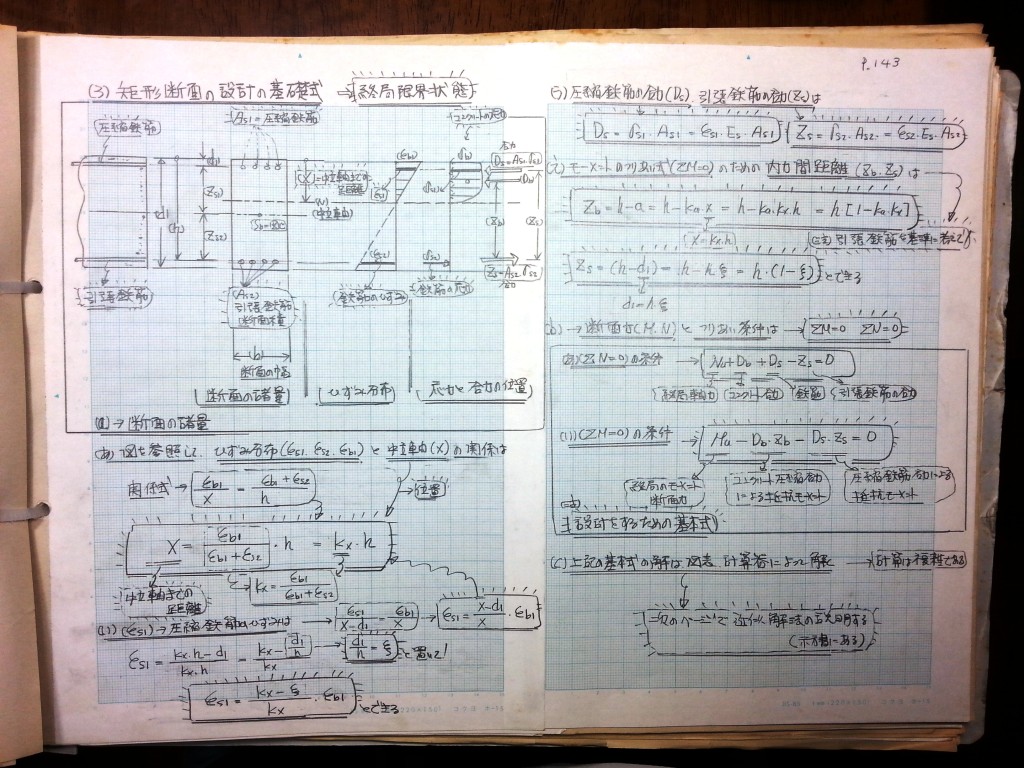 P.143
(3) 矩形断面の設計の基礎式 → 終局限界状態
圧縮鉄筋
(As1)=圧縮鉄筋
コンクリートの応力
合力
Ds=As1・σs1
(Db)
d1
(Zs1)
(Zs2)
(d)
(h)
(X)=中立軸までの距離
(N)
(中立軸)
(εb1)
(εs1)
(εs2)
(σb)
(σs2)
(Zb)
(Zs)
Zs=As2・σs2
合力
引張鉄筋
(As2)
引張鉄筋
断面積
(鉄筋のひずみ)
鉄筋の応力
b
断面の幅
断面の諸量
ひずみ分布
応力と合力の位置
(a) → 断面の諸量
(あ) 図を参照して、ひずみ分布(εs1. εs2. εb1)と中立軸(X)の関係は
関係式 → εb1/X = (εb1+εs2)/h
位置
X = εb1/(εb1+εs2)・h = kx・h
中立軸までの距離
kx = εb1/(εb1+εs2)
(い) (εs1) → 圧縮鉄筋のひずみは → εs1/(X-d1) = εb1/X → εs1 = (X-d1)/X・εb1
εs1 = (kx・h-d1)/(kx・h) = (kx-(d1/h))/kx → d1/h = ξ と置いて
εs1 = (kx-ξ)/kx・εb1 とできる
う) 圧縮鉄筋の合力(Ds). 引張鉄筋の合力(Zs)は
Ds = σs1・As1 = εs1・Es・As1 Zs = σs2・As2 = εs2・Es・As2
(え) モーメントのつりあい式(ΣM=0)のための内力間距離(Zb. Zs)は
Zb = h-a = h-ka・x = h-ka・kx・h = h[1-ka・kx]
(X=kx・h)
引張鉄筋を基準に考えて
Zs = (h-d1) = h-h・ξ = h・(1-ξ) とできる
d1=h・ξ
(b) → 断面力(M.N)とつりあい条件は → ΣM=0 ΣN=0
(あ)(ΣN=0)の条件 → Nu+Db+Ds-Zs=0
終局軸力 コンクリート合力 鉄筋 引張鉄筋の合力
(い)(ΣM=0)の条件 → Mu-Db・Zb-Ds・Zs=0
終局のモーメント
断面力
コンクリート圧縮合力
による抵抗モーメント
圧縮鉄筋合力による
抵抗モーメント
設計をするための基本式
(c) 上記の基本式の解は、図表、計算器によって解く → 計算は複雑である
次のページで近似解法の式を説明する
(示方書にある)